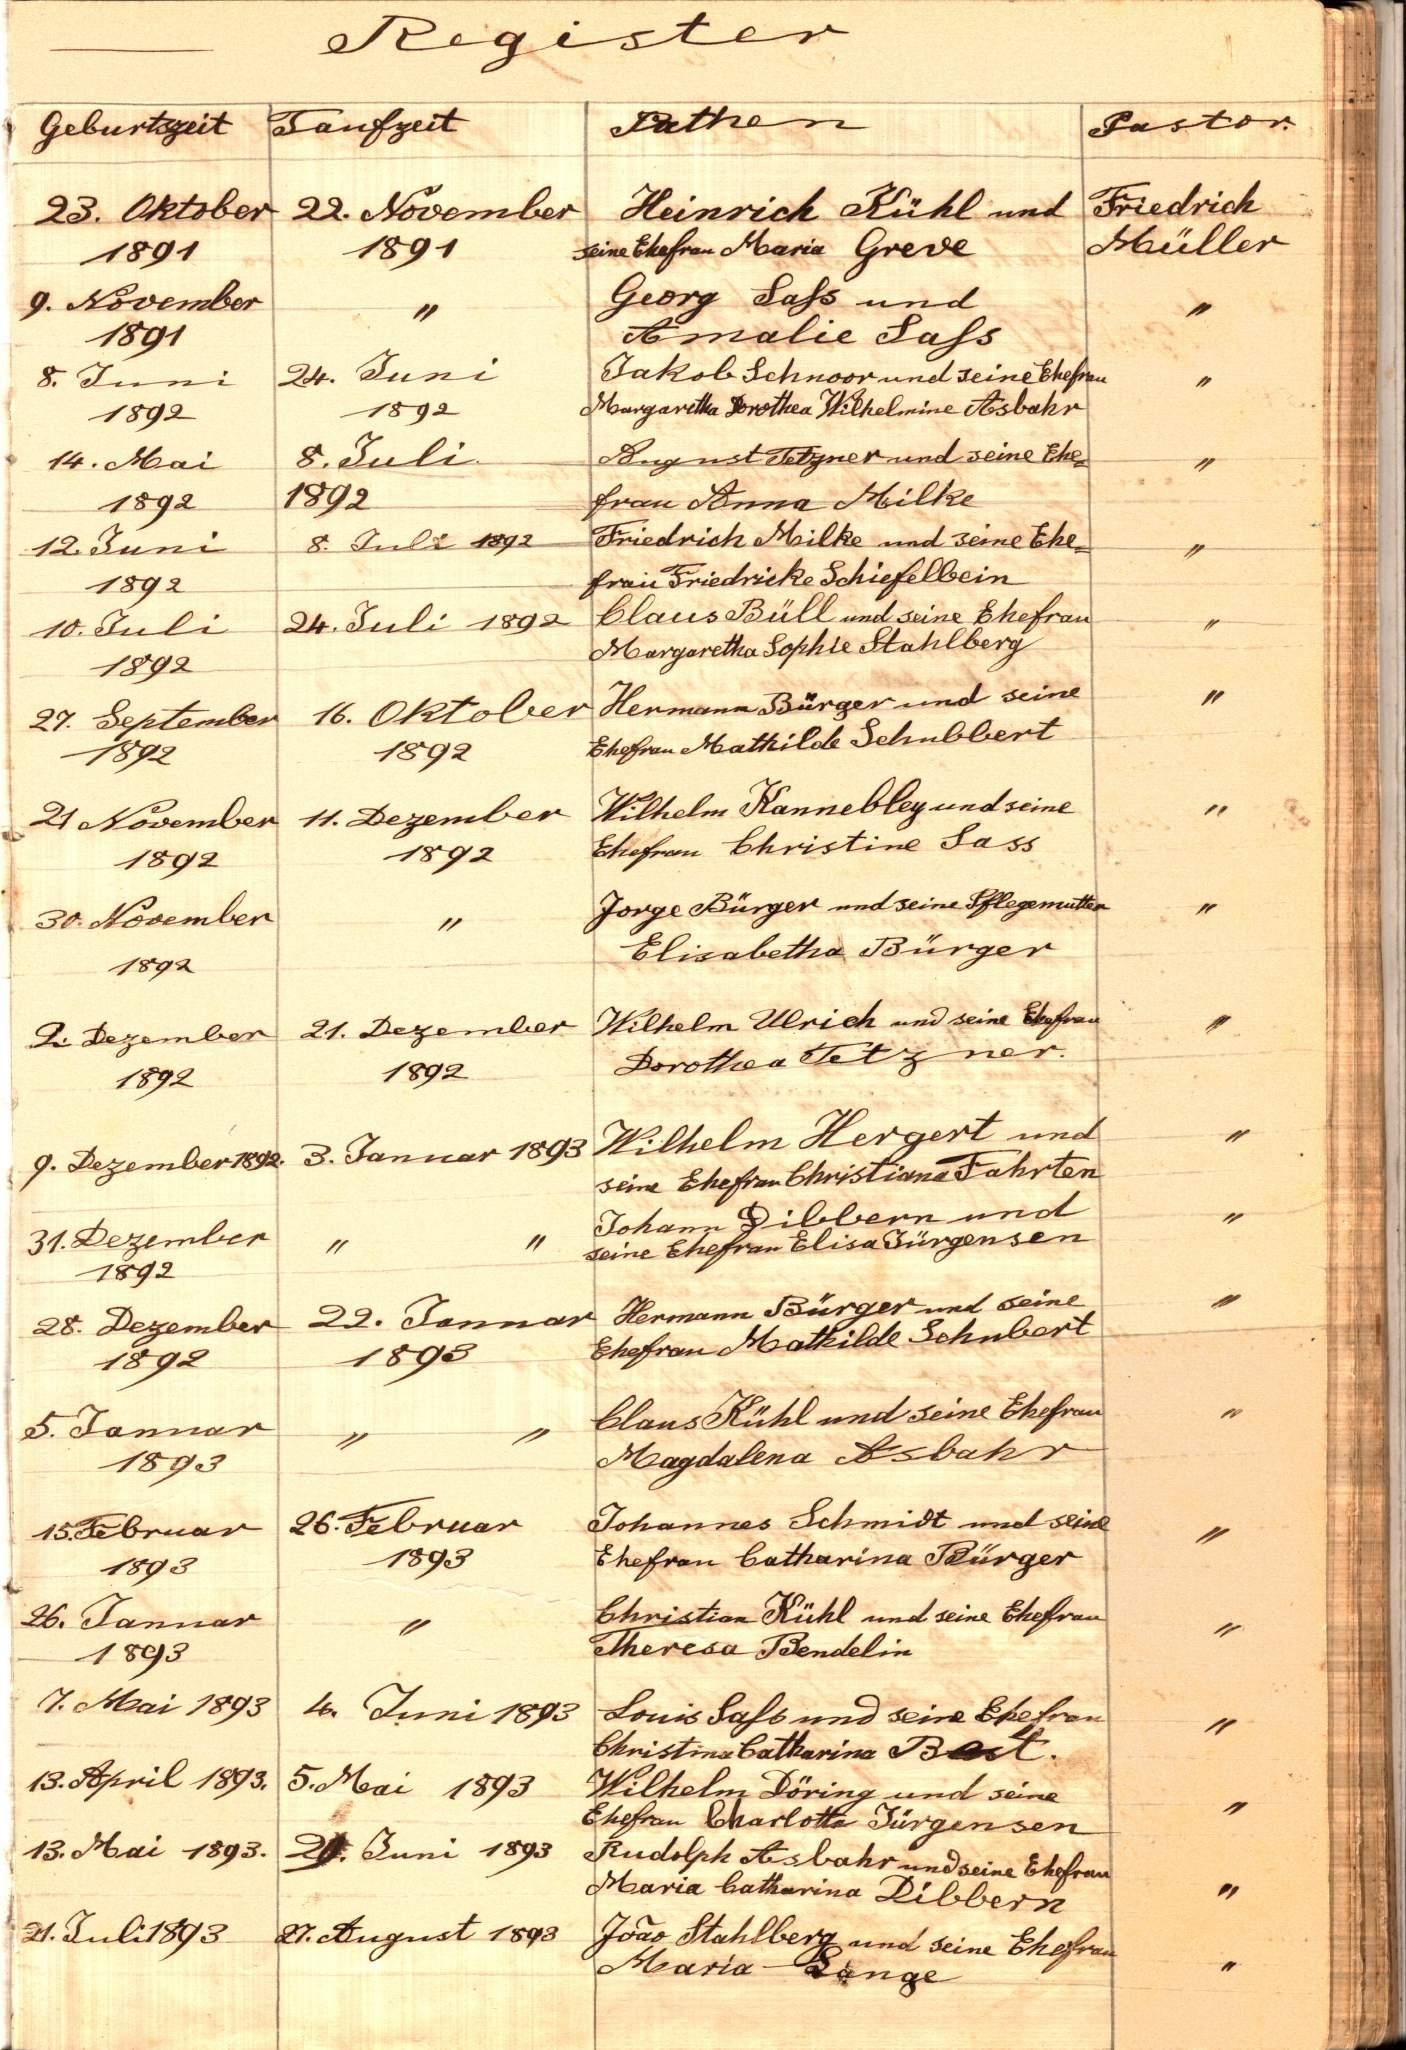 Register
Geburtszeit Taufzeit Pathen Pastor.
23. Oktober 22. November Heinrich Kühl und Friedrich
1891 1891 seine Ehefrau Maria Greve Müller
9. November " Georg Saſs und "
1891 Amalie Saſs
8. Juni 24. Juni Jakob Schnoor und seine Ehefrau "
1892 1892 Margaretha Dorothea Wilhelmine Asbahr
14. Mai 8. Juli August Tetzner und seine Ehe= "
1892 1892 frau Anna Milke
12. Juni 8. Juli 1892 Friedrich Milke und seine Ehe= "
1892 frau Friedricke Schiefelbein
10. Juli 24. Juli 1892 Claus Büll und seine Ehefrau "
1892 Margaretha Sophie Stahlberg
27. September 16. Oktober Hermann Bürger und seine "
1892 1892 Ehefrau Mathilde Schubbert
21 November 11. Dezember Wilhelm Kannebley und seine "
1892 1892 Ehefrau Christine Sass
30. November " Jorge Bürger und seine Pflegemutter "
1892 Elisabetha Bürger
2. Dezember 21. Dezember Wilhelm Ulrich und seine Ehefrau "
1892 1892 Dorothea Tetzner.
9. Dezember 1892. 3. Januar 1893 Wilhelm Hergert und "
seine Ehefrau Christiana Fahrten
31. Dezember " " Johann Dibbern und "
1892 seine Ehefrau Elisa Jürgensen
28. Dezember 22. Januar Hermann Bürger und seine "
1892 1893 Ehefrau Mathilde Schubert
5. Januar " " Claus Kühl und seine Ehefrau "
1893 Magdalena Asbahr
15. Februar 26. Februar Johannes Schmidt und seine "
1893 1893 Ehefrau Catharina Bürger
26. Januar " Christian Kühl und seine Ehefrau "
1893 Theresa Bendelin
7. Mai 1893 4. Juni 1893 Louis Saſs und seine Ehefrau "
Christina Catharina
13. April 1893. 5. Mai 1893 Wilhelm Döring und seine "
Ehefrau Charlotta Jürgensen
13. Mai 1893. Juni 1893 Rudolph Asbahr und seine Ehefrau "
Maria Catharina Dibbern
21. Juli 1893 27. August 1893 João Stahlberg und seine Ehefrau "
Maria Lange